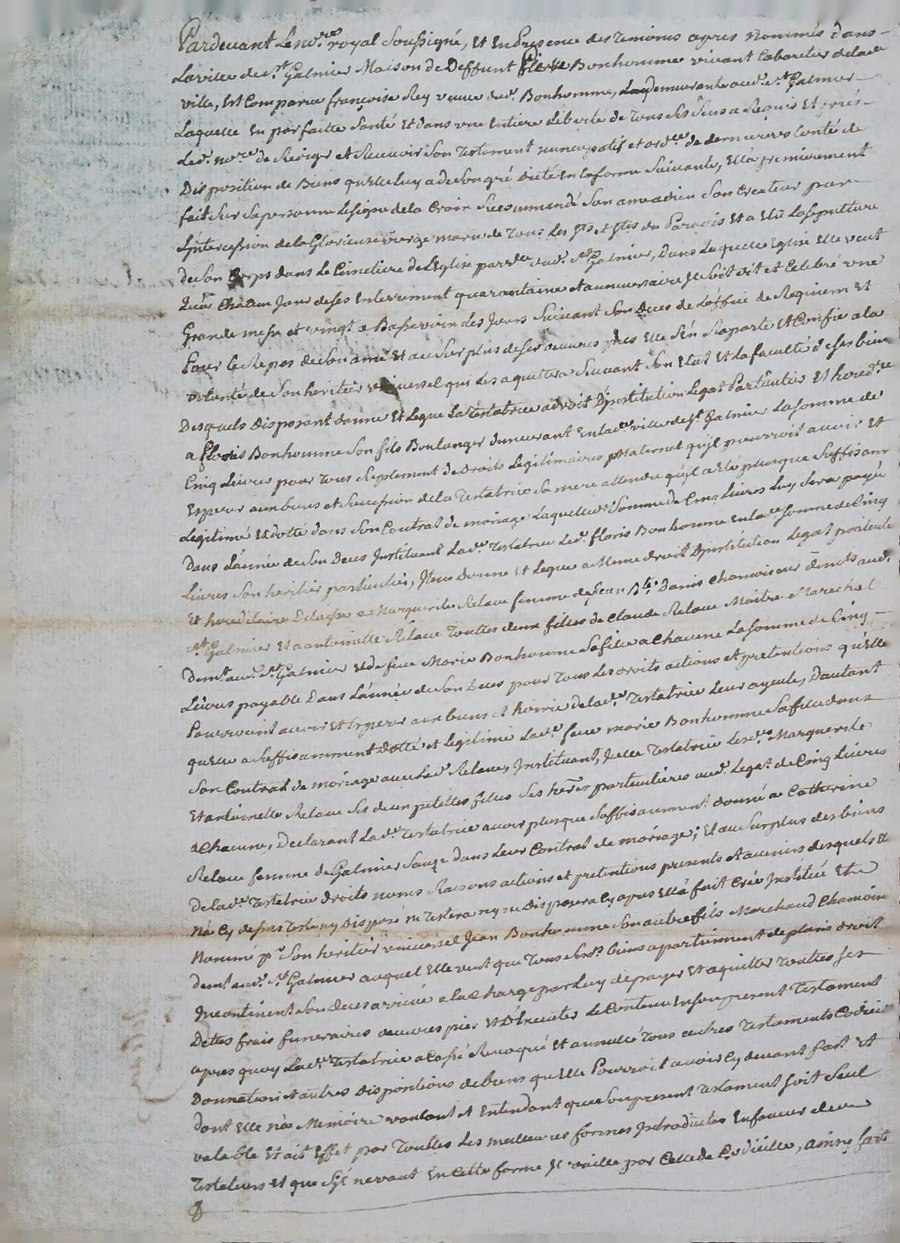 Pardevant Le no.re royal Soussigné, Et En Presence des temoins apres nommés dans
La ville de st. Galmier Maison de deffunt Bonhomme vivant Laboreur de lad.
ville, Est Comparue françoise Rey veuve dud. Bonhomme, demeurante aud. st. Galmier
Laquelle En parfaite Santé Et dans une Entiere Liberté de Tous Ses Sens a Requis Et prié
Led. no.re de Rediger et Recevoir Son Testament nuncupatif et ord.ce de derniere volonté de
Disposition de Biens quelle luy a de Son gré dicté En la forme Suivante, Ella premierement
fait Sur Sa personne Le Signe de la Croix Recommandé Son ame a dieu Son Createur par
L'intercession de la Glorieuse vierge marie de Tous Les sts et stes du Paradis Et a Elu La Sepulture
de Son Corps dans Le Cimetiere de L'Eglise par.lle dud. st. Galmier, Dans Laquelle Eglise Elle veut
qu'a Chacun Jour de Ses Enterrement quarantaine et anniversaire Il Soit dit et Celebré une
Grande messe et vingt a Basse voix Les Jours Suivant Son Deces de L'office de Requiem Et
Pour le Repos de Son ame Et au Surplus de Ses oeuvres pies Elle S'en Raporte Et Confie a la
volonté de Son heritier universel qui Les aquittera Suivant Son Etat Et La faculté de Ses biens
Desquels disposant donne Et Legue La Testatrice a droit D'institution Legat Particulier Et hered.re
a floris Bonhomme Son fils Boulanger demeurant En lad. ville de st. Galmier La Somme de
Cinq Livres pour Tous Suplement de droits Legitimaires Maternel qu'il pourroit avoir Et
Esperer aux biens et Succession de la Testatrice Sa mere attendu qu'il a Eté plus que Suffisam.t
Legitimé Et dotté dans Son Contrat de mariage Laquelle Somme de Cinq Livres Luy Sera payée
Dans L'année de Son Deces Instituant La d. Testatrice Led. floris Bonhomme En la Somme de Cinq
Livres Son heritier particulier, Item donne Et Legue a Meme droit D'institution Legat particulier
Et hereditaire Delaisse a Marguerite Relave femme de Jean B.te Danis Chamoiseur dem.ts aud.
st. Galmier Et a antoinette Relave Toutes deux filles de Claude Relave Maitre Marechal
dem.t aud. st. Galmier Et de feue Marie Bonhomme Sa fille a Chacune La Somme de Cinq
Livres payable Dans L'année de Son Deces pour Tous Les droits actions Et pretentions qu'elle
Pourroient avoir Et Esperer aux biens Et hoirie de lad. Testatrice Leur ayeule, D'autant
quelle a Suffisamment dotté et Legitimé La d. feue marie Bonhomme Sa fille dans
Son Contrat de mariage avec Led. Relave, Instituant, Icelle Testatrice Lesd. Marguerite
Et antoinette Relave Ses deux petittes filles Ses her.es particulieres aud. Legat de Cinq Livres
a Chacune, Declarant La d. Testatrice avoir plus que Suffisamment donné a Catherine
Relave femme de Galmier Sauze dans Leur Contrat de mariage; Et au Surplus des biens
de lad. Testatrice droits noms Raisons actions et pretentions presents Et avenirs desquels Elle
Na Cy dessus Testé ny Disposé ne Testera ny ne Disposera Cy apres Ella fait Créé Institué Et
Nommé p.r Son heritier universel Jean Bonhomme Son autre fils Marchand Chamoiseur
dem.t aud. st. Galmier auquel Elle veut que Tous Sesd. biens apartiennent de plains droit
Incontinent Son Deces arrivé a la Charge par Luy de payer Et aquitter Toutes Ses
Dettes frais funeraires oeuvres pies Et D'Executer Le Contenu En Son present Testament
apres quoy La d. Testatrice a Cassé Revoqué Et annullé Tous autres Testaments Codicil
Donnation et autres dispositions de biens qu'elle Pourroit avoir Cy devant fait Et
dont Elle n'es Memoire voulant et Entendant que Ce present Testament Soit Seul
valable Et ait Effet par Toutes Les meilleures formes Introduites En faveur des
Testateurs Et que S'il ne vaut En Cette forme Il vaille par Celle de Codicille, ainsy fait